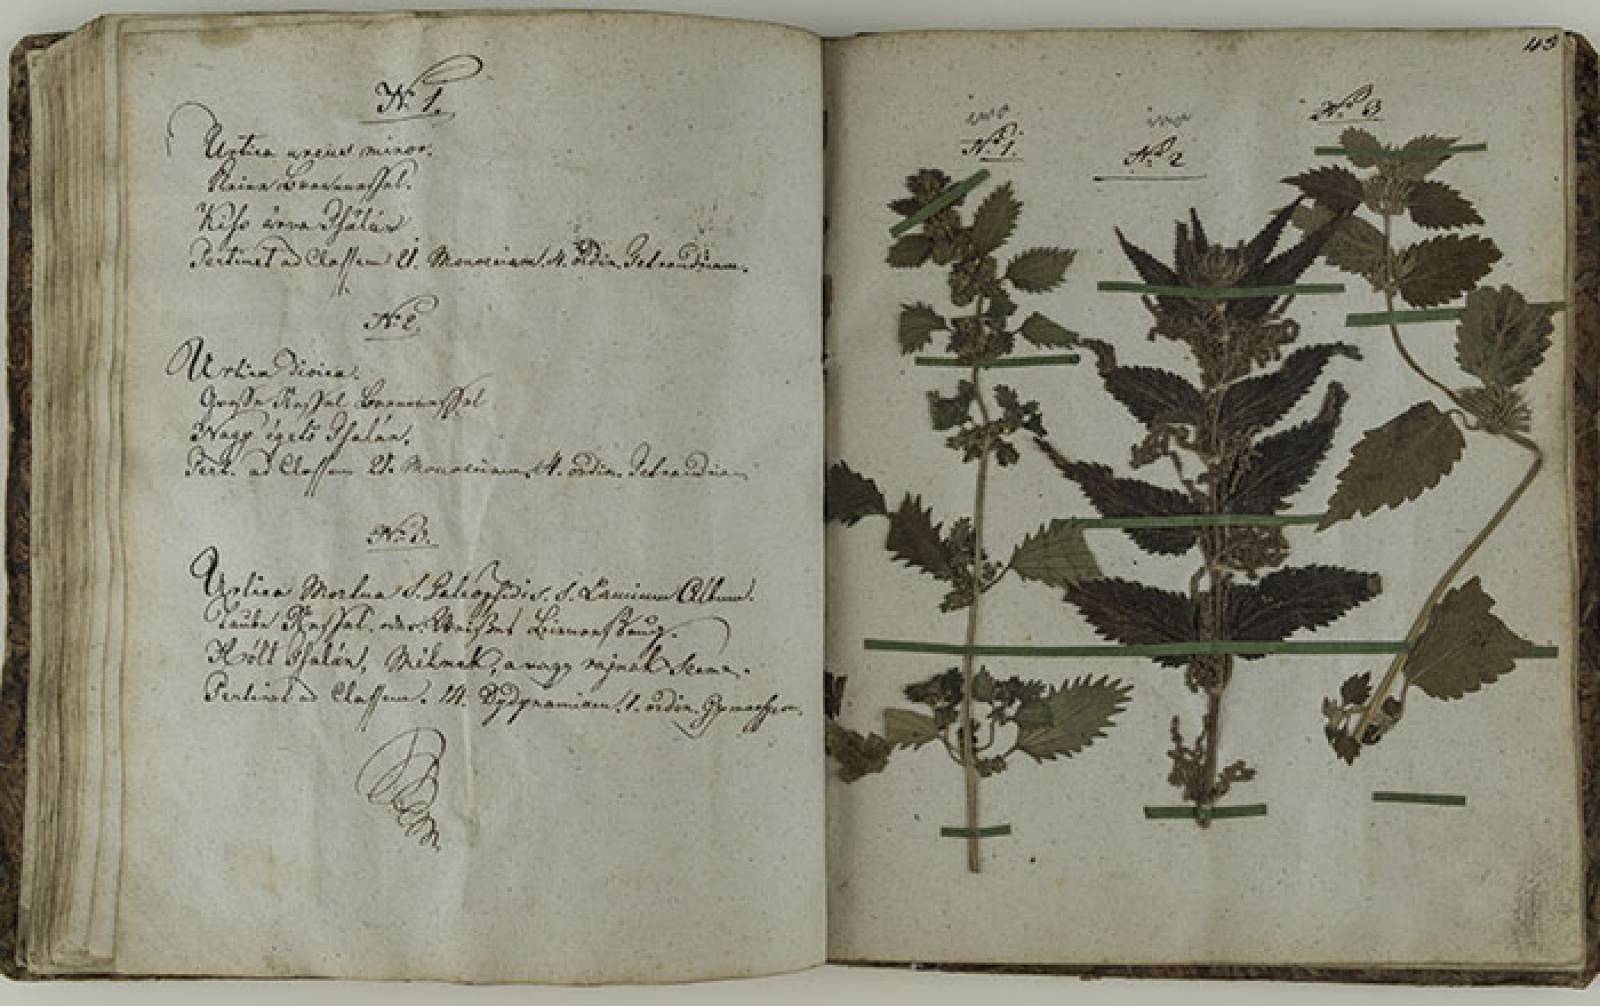 N: 1.
Urtica urens minor.
Kleine Brennnessel.
Kiss árva Tsalán
Pertinet ad Classem 21. Monoeciam. 4. ordin. Tetrandriam.
N: 2.
Urtica dioica.
Grosse Nessel Brennnessel
Nagy égető Tsalán.
Pert. ad Classem 21. Monoeciam. 4. ordin. Tetrandriam
N: 3.
Urtica Mortua s. Galeopsidis. s. Lamium Album.
Taube Nessel. oder. Weisses Bienensaug.
Hólt Tsalán, Méhnek, avagy rajnak
Pertinet ad Classem. 14. Dydynamiam. 1. ordin.
43
N: 1.
N: 2
N: 3